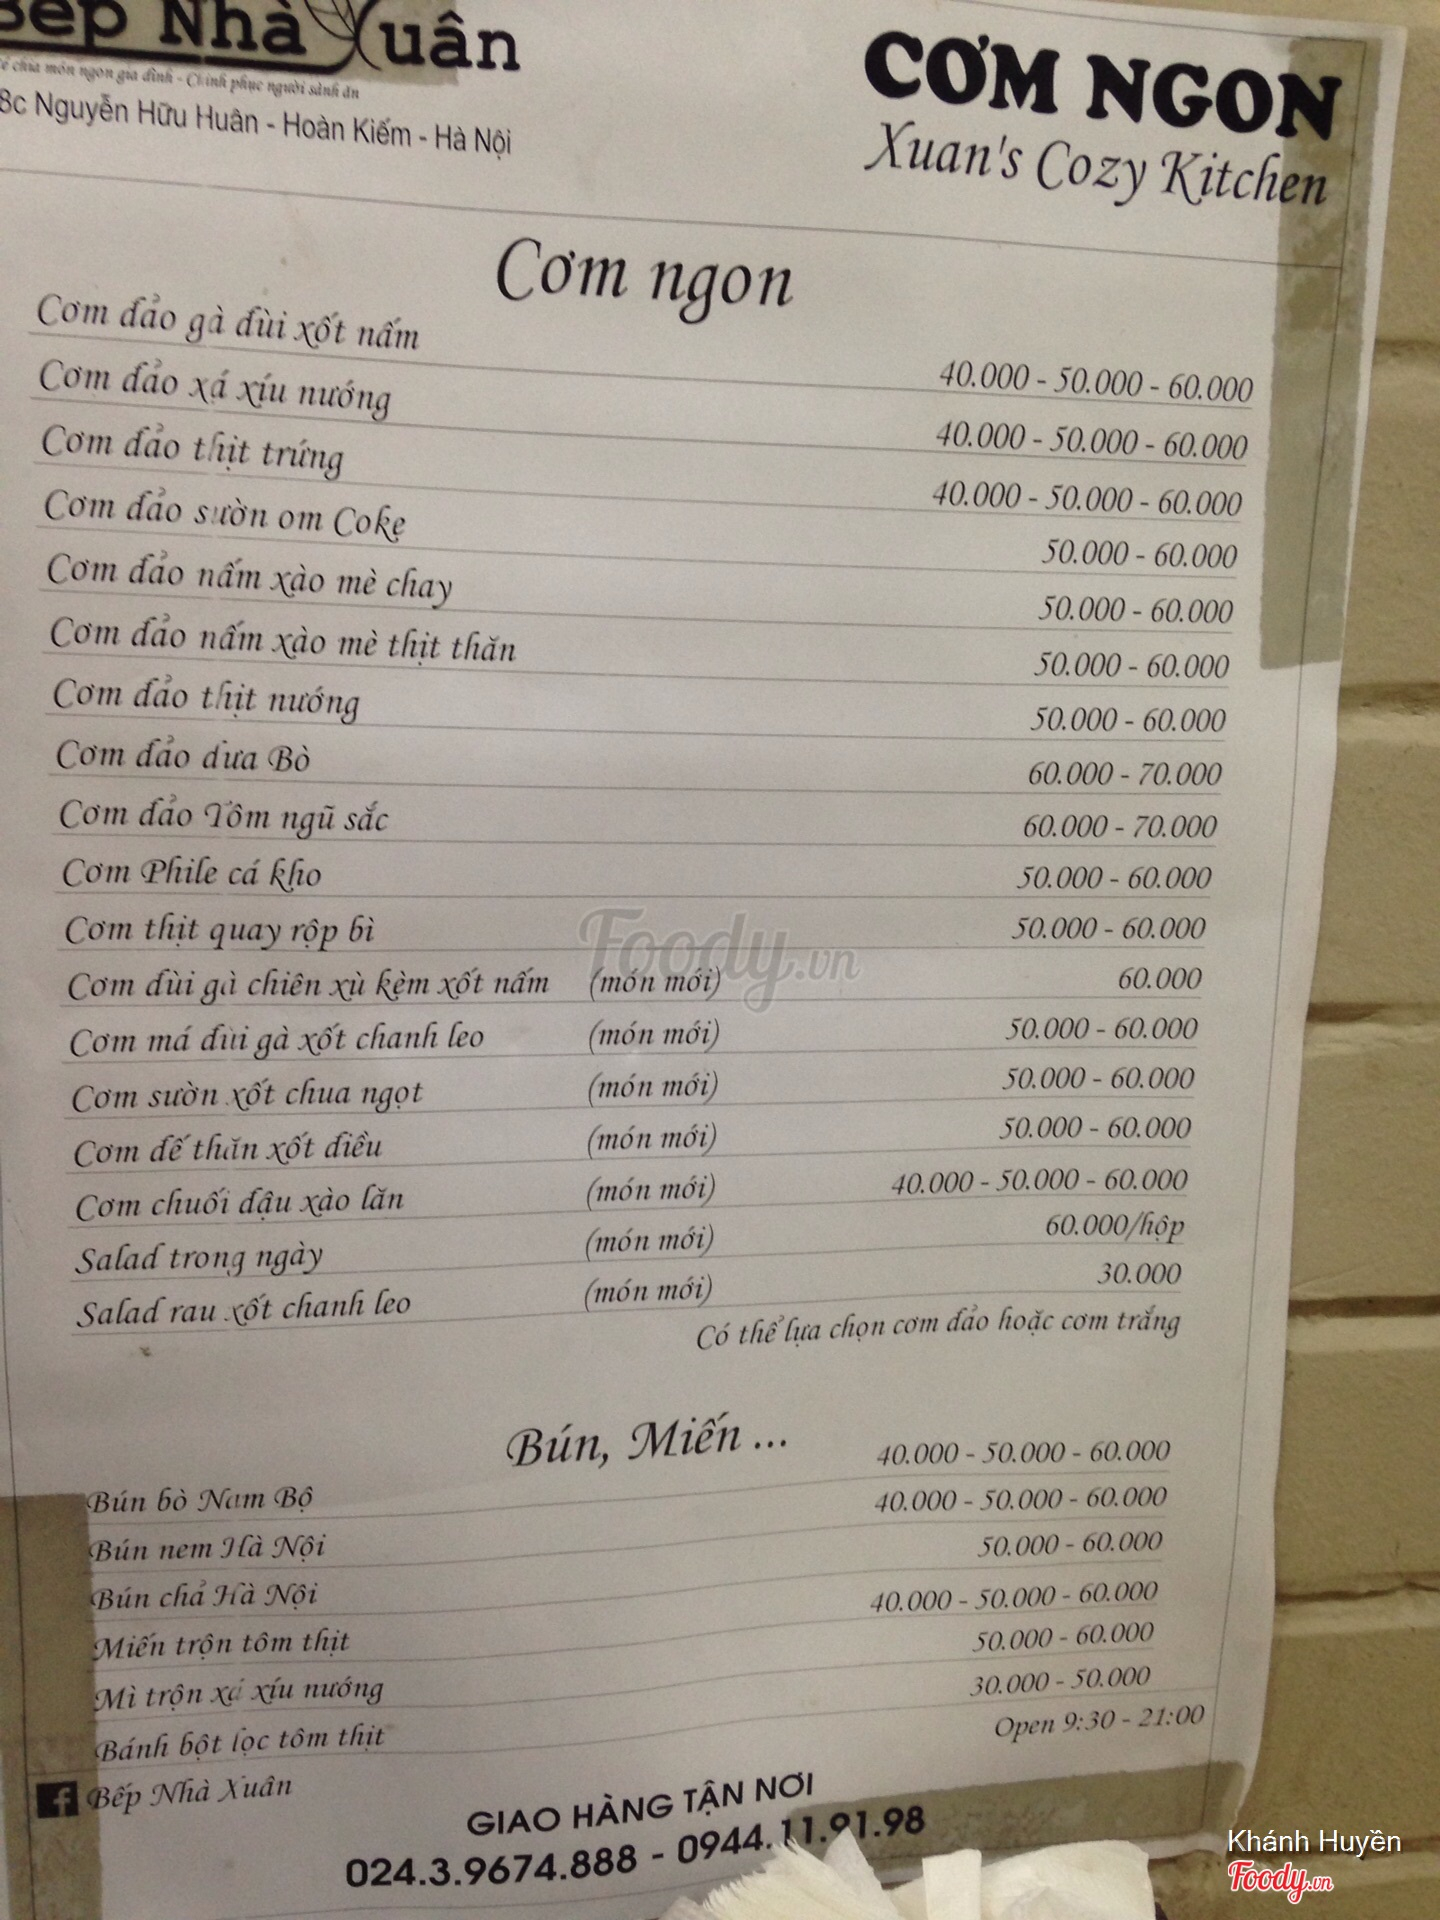 Bếp Nhà Xuân
chia món ngon gia đình - Chinh phục người sành ăn
8c Nguyễn Hữu Huân - Hoàn Kiếm - Hà Nội
CƠM NGON
Xuan's Cozy Kitchen
Cơm ngon
Cơm đảo gà đùi xốt nấm 40.000 - 50.000 - 60.000
Cơm đảo xá xíu nướng 40.000 - 50.000 - 60.000
Cơm đảo thịt trứng 40.000 - 50.000 - 60.000
Cơm đảo sườn om Coke 50.000 - 60.000
Cơm đảo nấm xào mè chay 50.000 - 60.000
Cơm đảo nấm xào mè thịt thăn 50.000 - 60.000
Cơm đảo thịt nướng 50.000 - 60.000
Cơm đảo dưa Bò 60.000 - 70.000
Cơm đảo Tôm ngũ sắc 60.000 - 70.000
Cơm Phile cá kho 50.000 - 60.000
Cơm thịt quay rộp bì 50.000 - 60.000
Cơm đùi gà chiên xù kèm xốt nấm (món mới) 60.000
Cơm má đùi gà xốt chanh leo (món mới) 50.000 - 60.000
Cơm sườn xốt chua ngọt (món mới) 50.000 - 60.000
Cơm dế thăn xốt điều (món mới) 50.000 - 60.000
Cơm chuối đậu xào lăn (món mới) 40.000 - 50.000 - 60.000
Salad trong ngày (món mới) 60.000/hộp
Salad rau xốt chanh leo (món mới) 30.000
Có thể lựa chọn cơm đảo hoặc cơm trắng
Bún, Miến ...
Bún bò Nam Bộ 40.000 - 50.000 - 60.000
Bún nem Hà Nội 40.000 - 50.000 - 60.000
Bún chả Hà Nội 50.000 - 60.000
Miến trộn tôm thịt 40.000 - 50.000 - 60.000
Mì trộn xá xíu nướng 50.000 - 60.000
Bánh bột lọc tôm thịt 30.000 - 50.000
f Bếp Nhà Xuân Open 9:30 - 21:00
GIAO HÀNG TẬN NƠI
024.3.9674.888 - 0944.11.91.98
Foody.vn
Khánh Huyền
Foody.vn